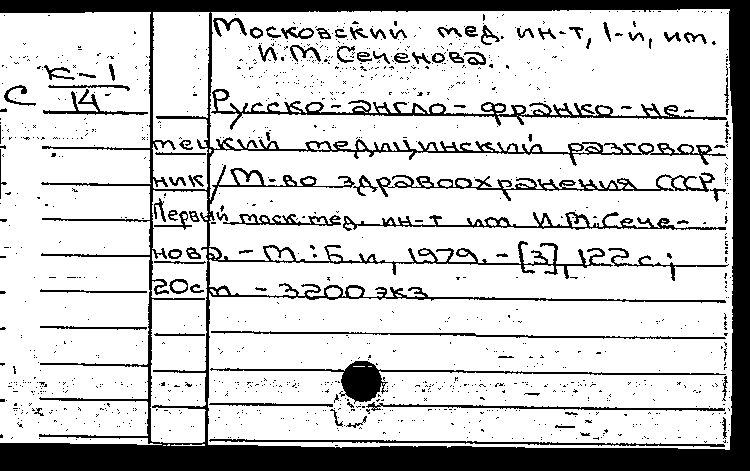 Московский мед. ин-т, I-й, им.
И.М. Сеченова.
С К-1
14
Русско-англо-франко-не-
мецкий медицинский разговор-
ник / М-во здравоохранения СССР,
Первый моск. мед. ин-т им. И.М. Сече-
нова. - М. : Б. и., 1979. - [3], 122 с. ;
20 см. - 3200 экз.